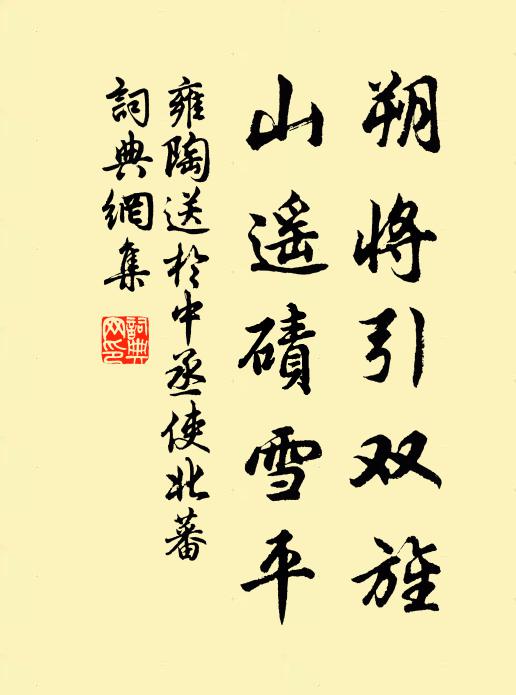 朔将引双旌
山遥磧雪平
雍陶送於中丞使北蕃
詞典網集
詞典
网印